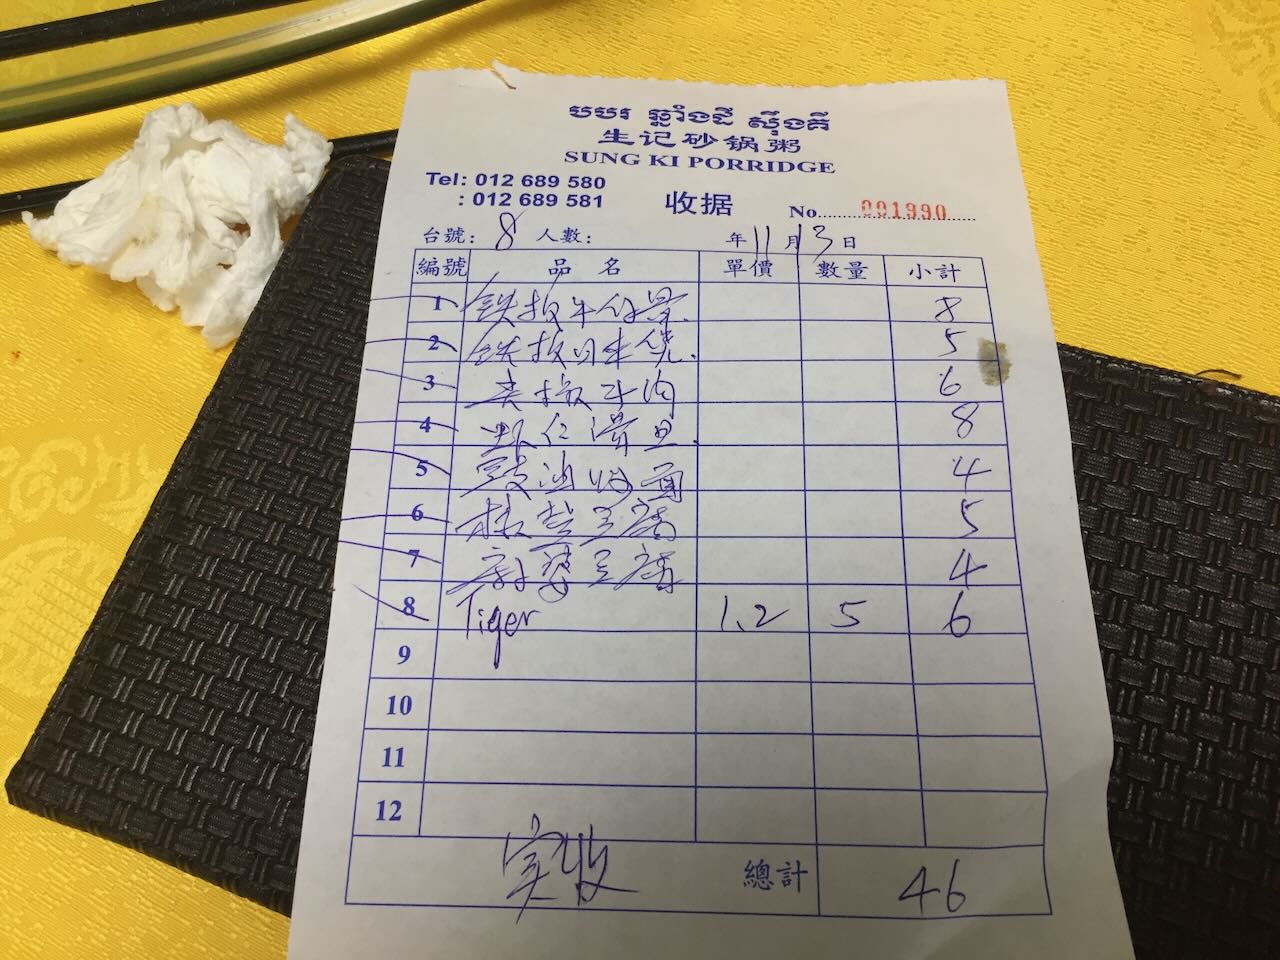 បបរ ឆ្នាំងដី ស៊ឹងគី
生记砂锅粥
SUNG KI PORRIDGE
Tel: 012 689 580
: 012 689 581
收据
No 001990
台號: 8 人數: 年 11 月 13 日
編號 品名 單價 數量 小計
1 铁板牛仔骨 8
2 铁板日本 5
3 尖椒牛肉 6
4 虾仁滑旦 8
5 豉油炒面 4
6 椒盐豆腐 5
7 麻婆豆腐 4
8 Tiger 1.2 5 6
9
10
11
12
实收 總計 46